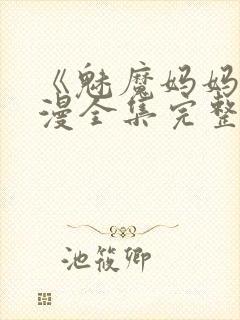 《魅魔妈妈
漫全集完整
池筱卿